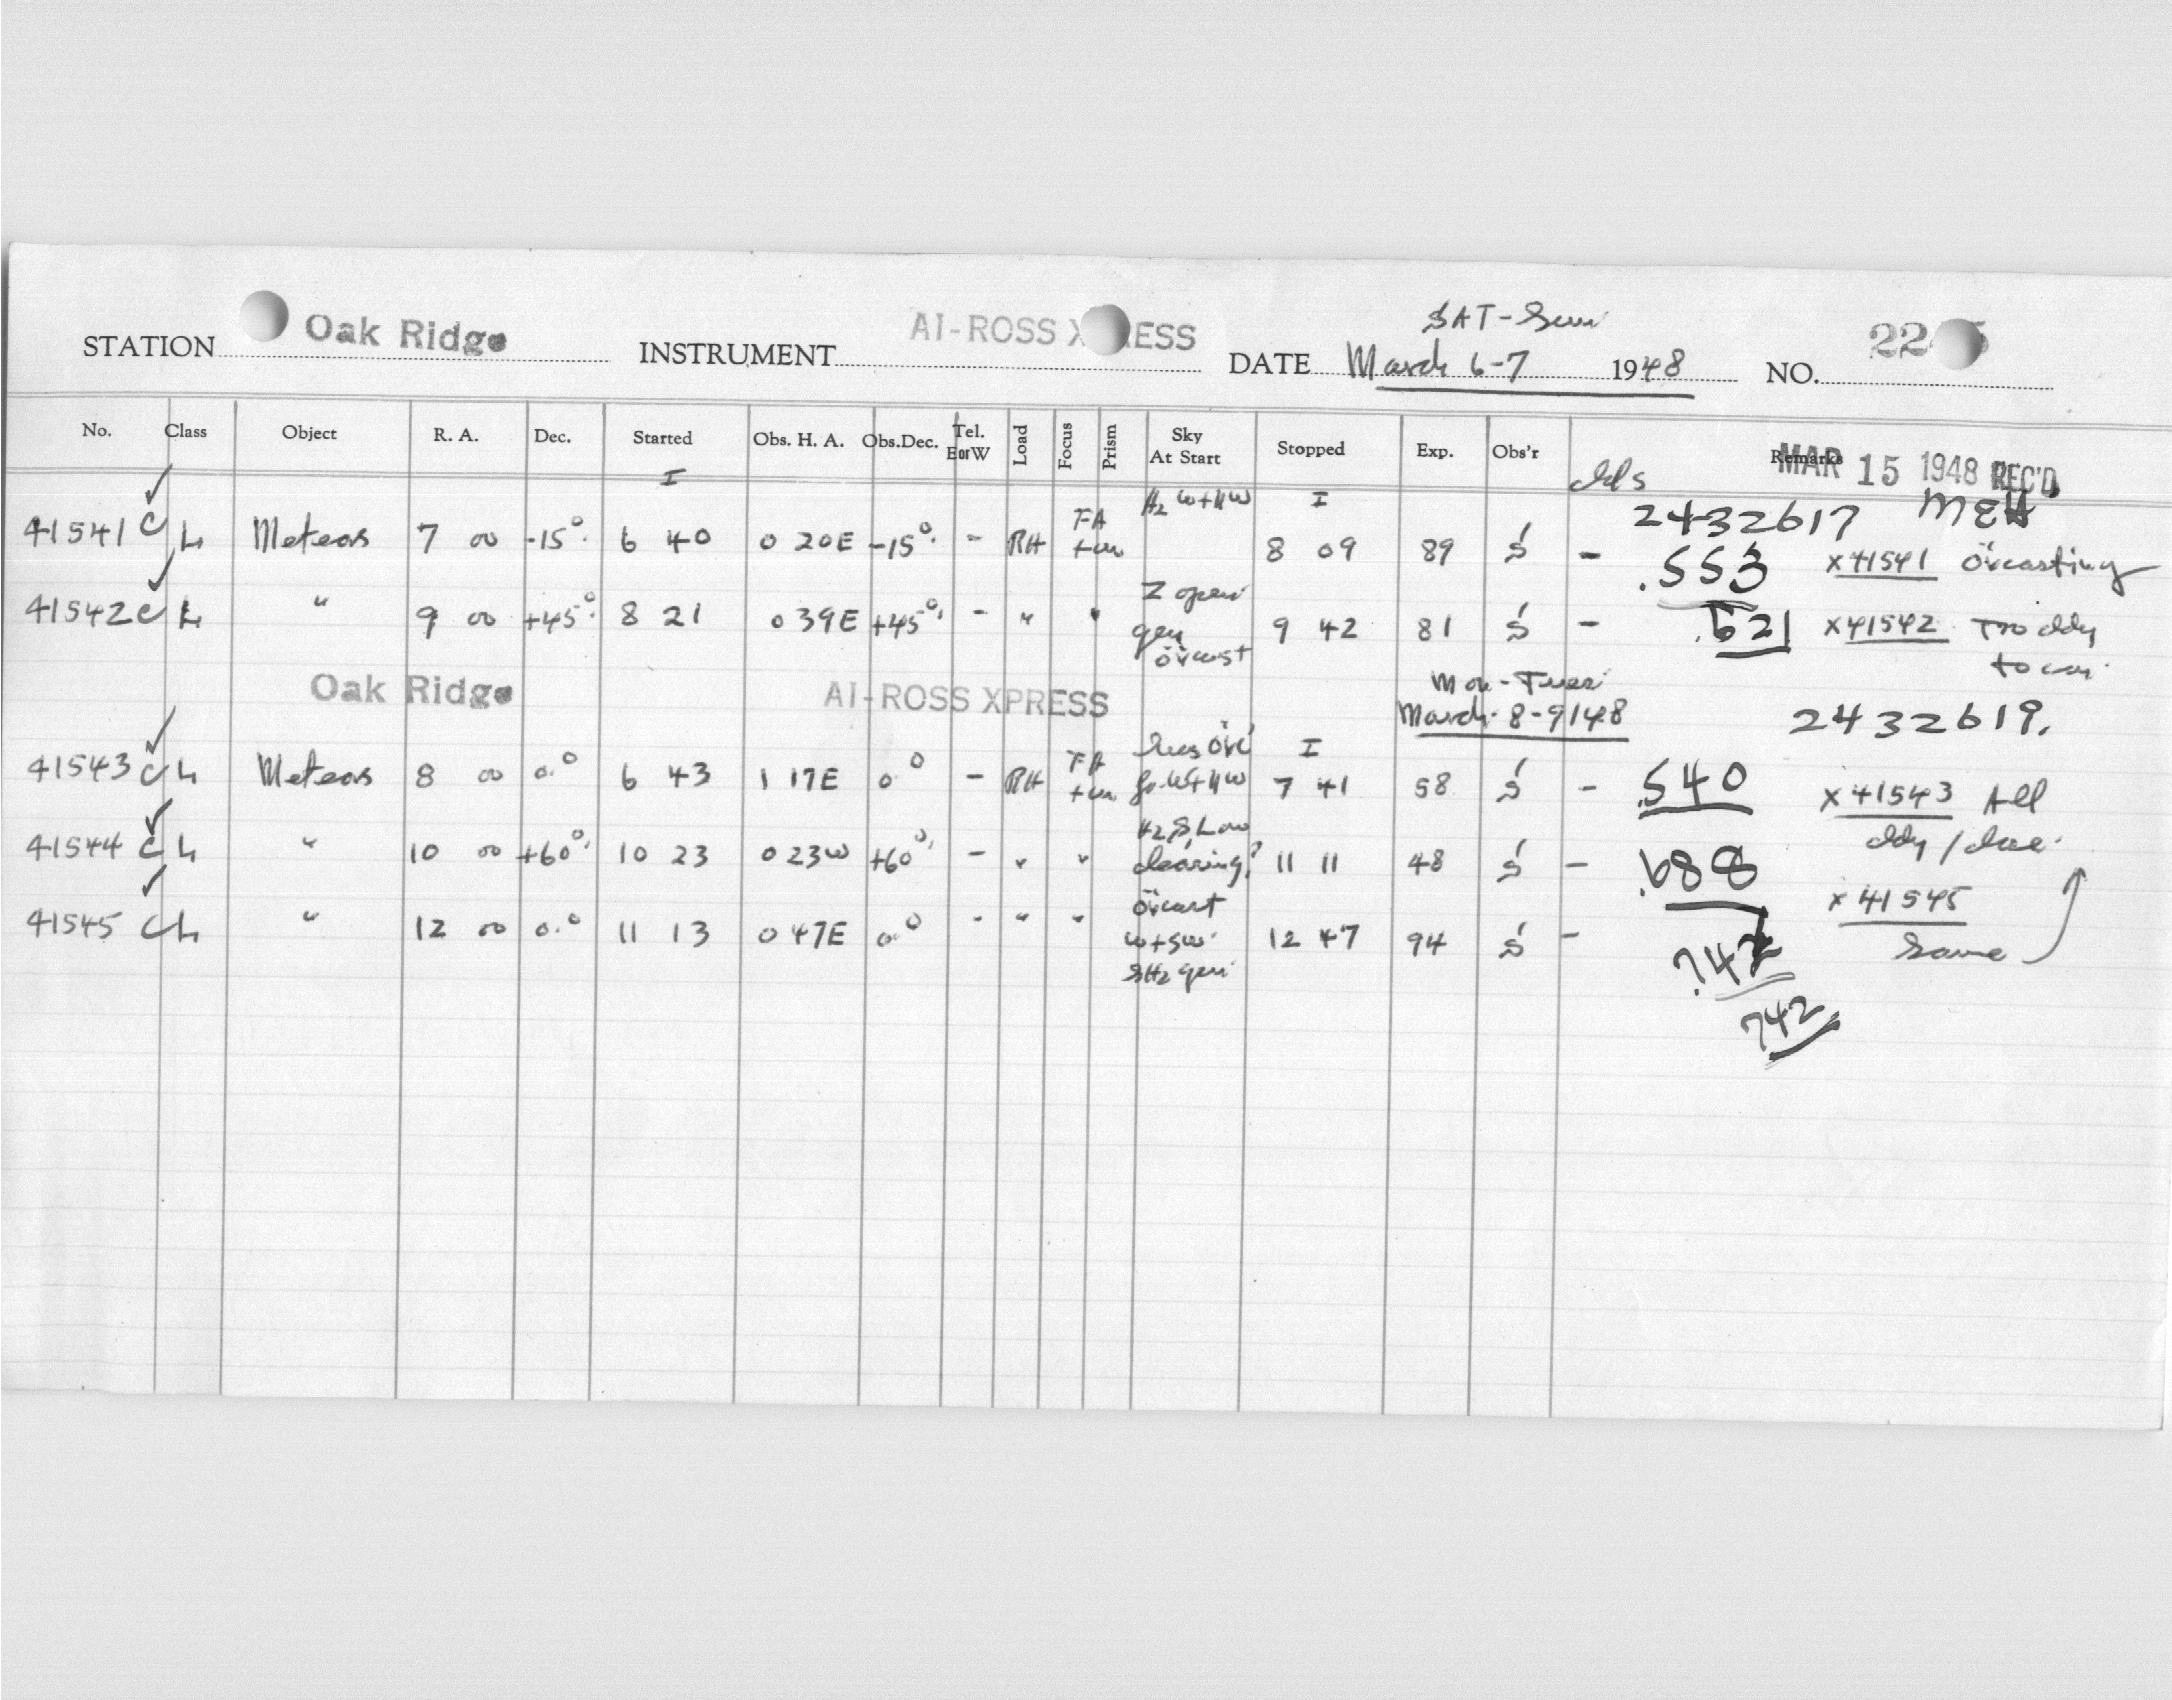 STATION Oak Ridge INSTRUMENT AI-ROSS X RESS DATE SAT-Sun March 6-7 1948 NO. 22 5
No. Class Object R. A. Dec. Started Obs. H. A. Obs.Dec. Tel. E or W Load Focus Prism Sky At Start Stopped Exp. Obs'r Remarks
MAR 15 1948 REC'D
I I 2432617 MEH
41541 C L Meteors 7 00 -15° 6 40 0 20E -15° - RH FA H2 W+NW 8 09 89 S - .553 x41541 overcasting
41542 C L " 9 00 +45° 8 21 0 39E +45° - " " Z open gen overcast 9 42 81 S - .621 x41542
Oak Ridge AI-ROSS XPRESS Mon-Tues March 8-9 1948 2432619.
41543 C L Meteors 8 00 0° 6 43 1 17E 0° - RH FA I 7 41 58 S - .540 x41543 All
41544 C L " 10 00 +60° 10 23 0 23W +60° - " " clearing? 11 11 48 S - .688
41545 C L " 12 00 0° 11 13 0 47E 0° - " " overcast W+SW 12 47 94 S - .742 x41545 Same
742